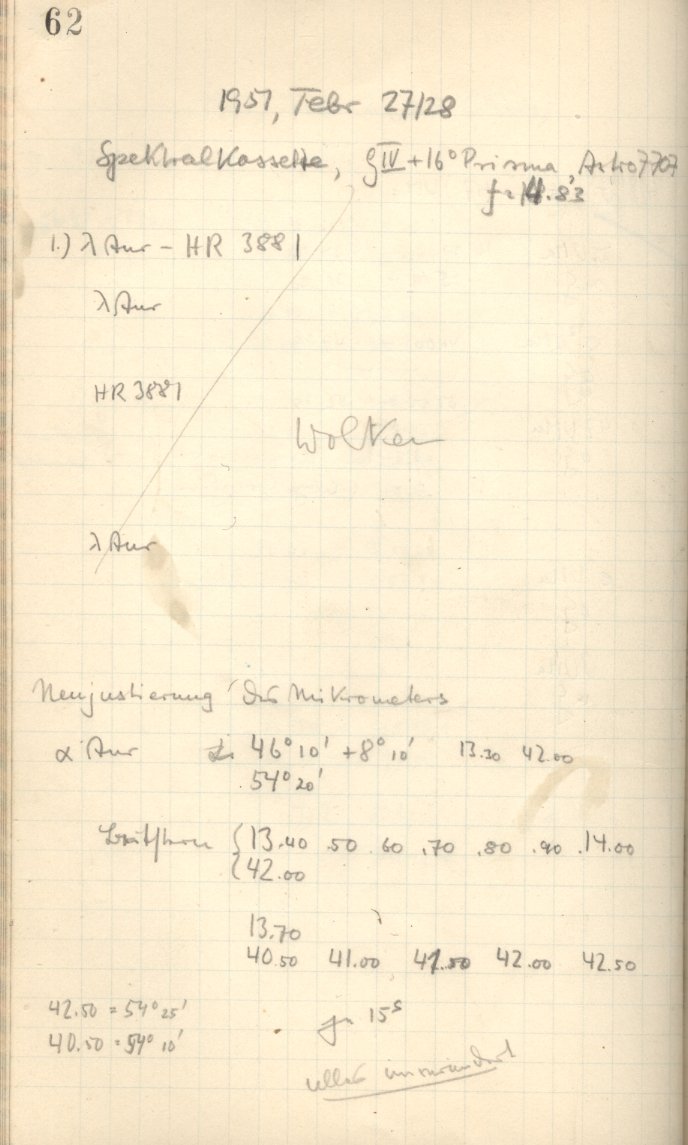 62
1951, Febr 27/28
Spektralkassette, ζ IV + 16° Prisma, Astro 7707
f = 14.83
1.) λ Aur – HR 3881
λ Aur
HR 3881
Wolken
λ Aur
Neujustierung des Mikrometers
α Aur 46° 10' + 8° 10' 13.30 42.00
54° 20'
Leitstern { 13.40 .50 .60 .70 .80 .90 .14.00
{ 42.00
13.70
40.50 41.00 41.50 42.00 42.50
42.50 = 54° 25'
je 15s
40.50 = 54° 10'
alles unverändert